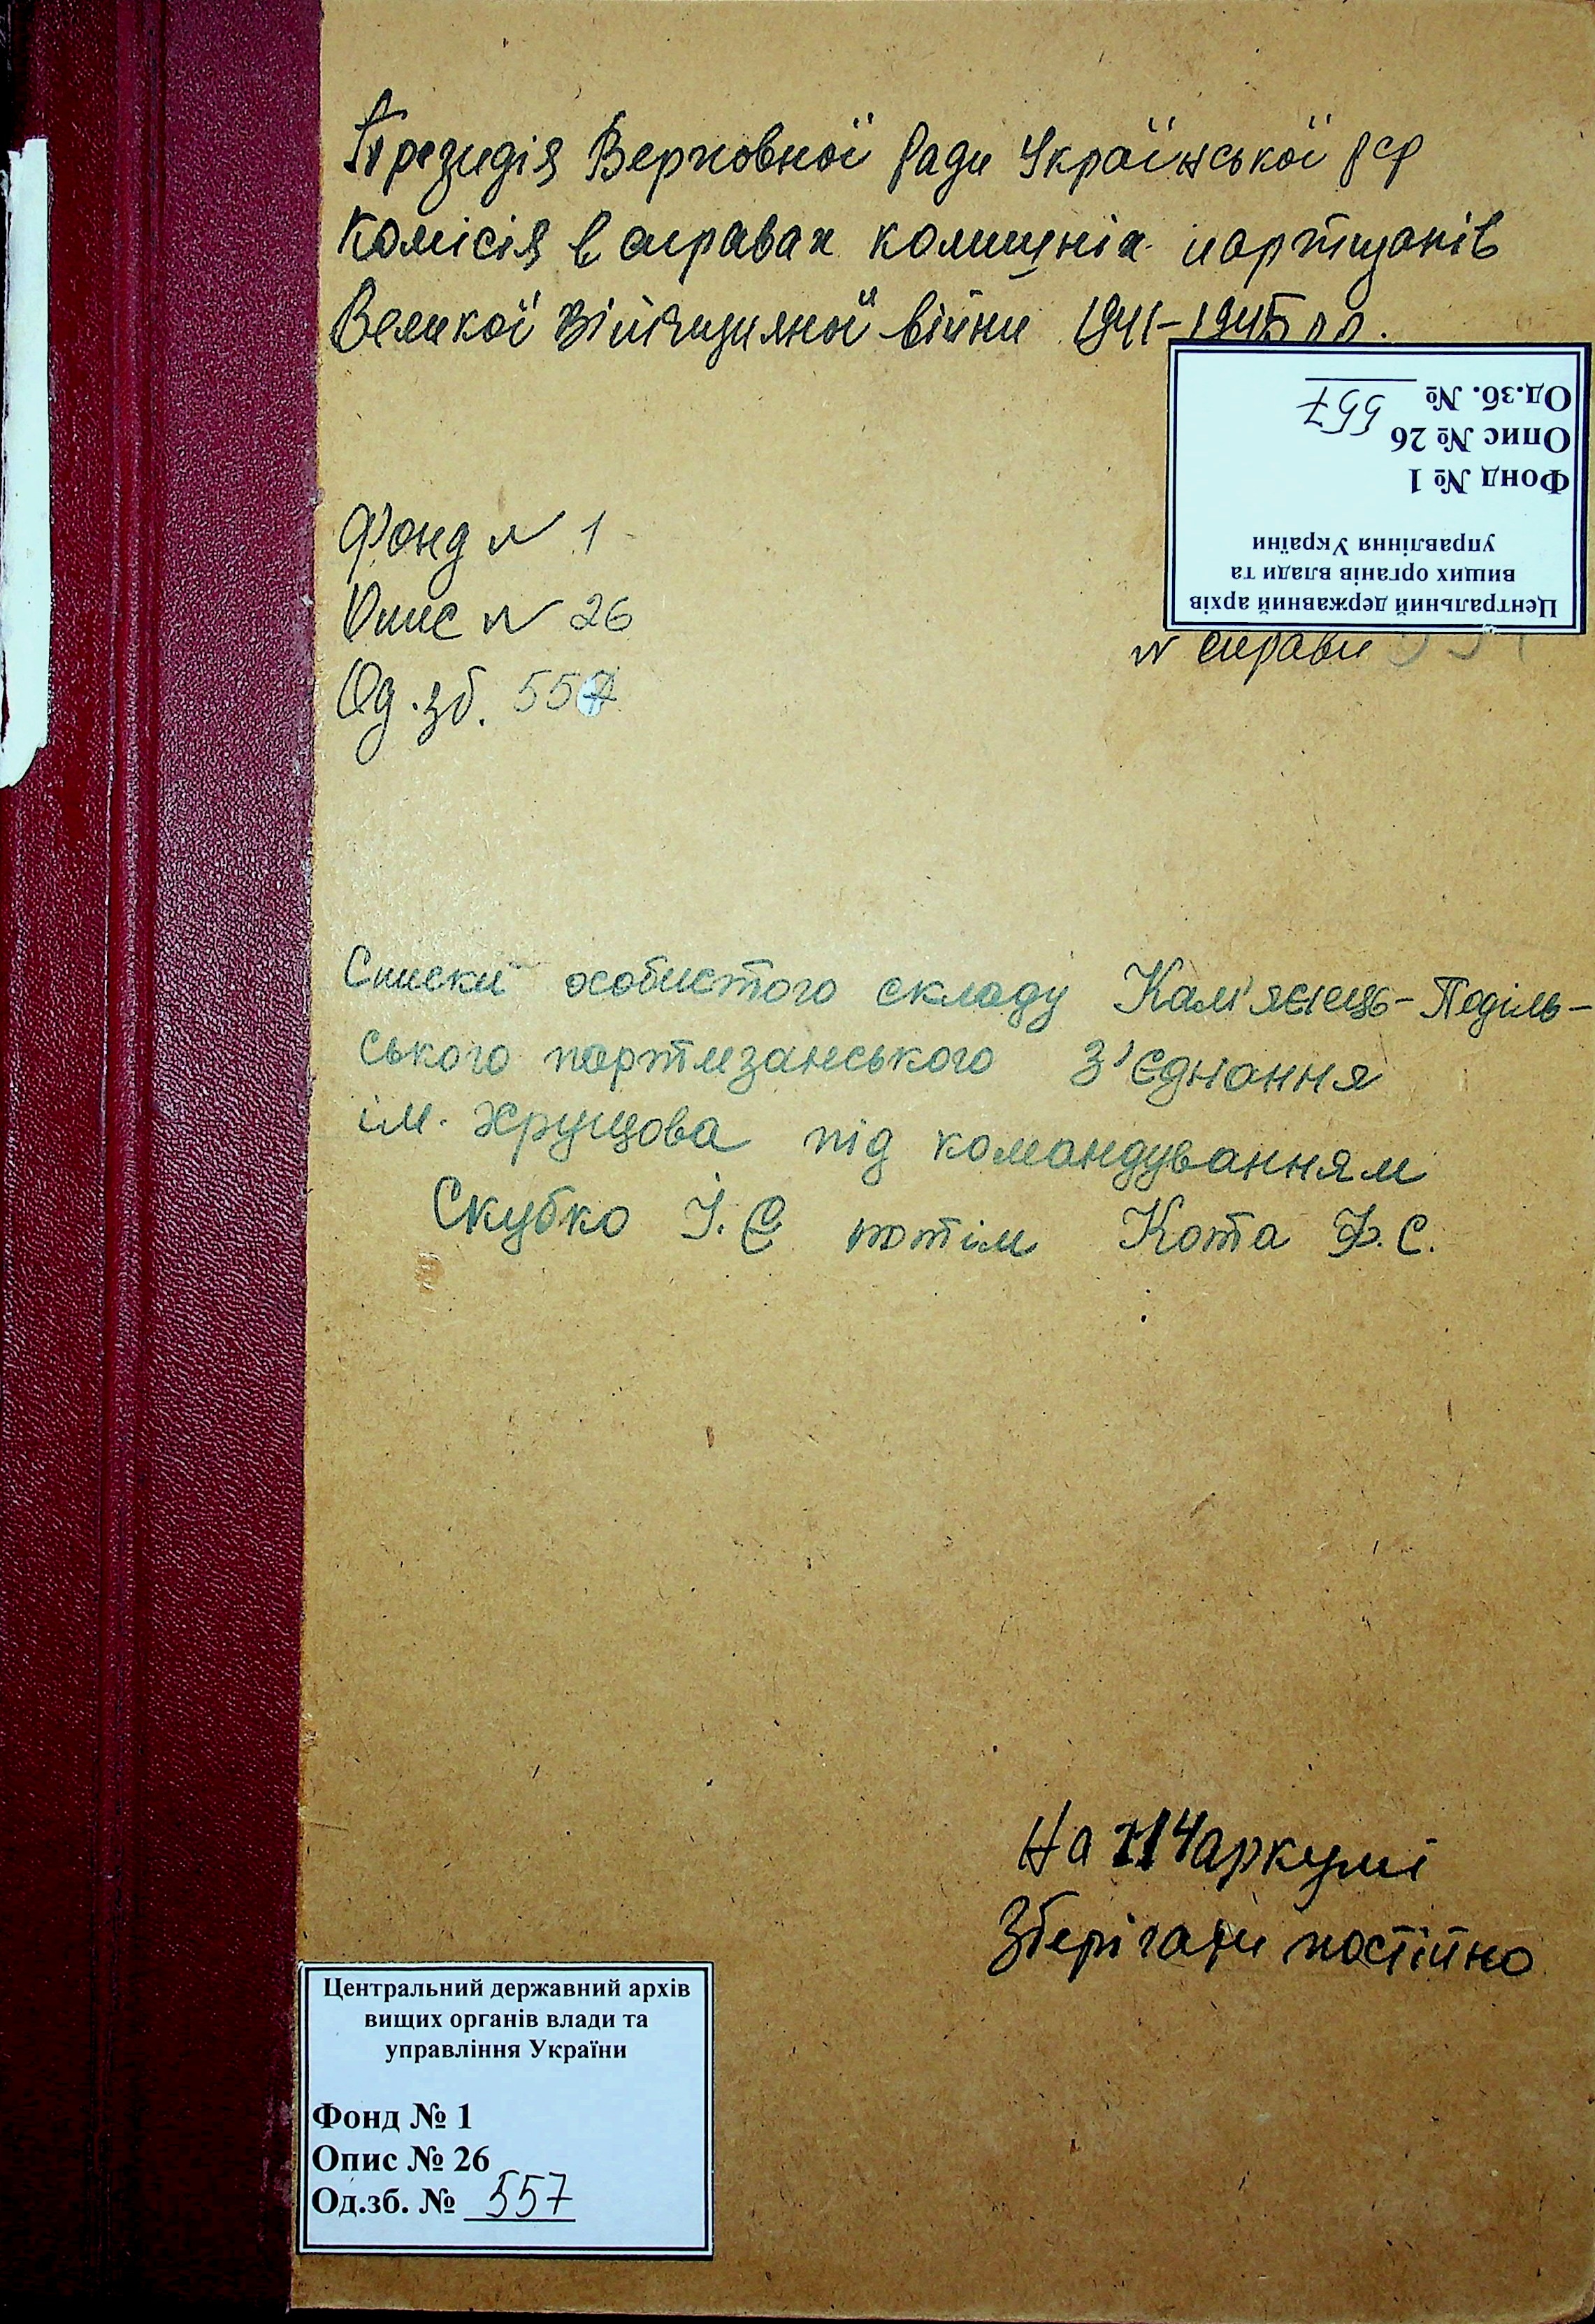 Президія Верховної Ради Української РСР
Комісія в справах колишніх партизанів
Великої Вітчизняної війни 1941-1945 рр.
Од.зб. № 557
Опис № 26
Фонд № 1
Центральний державний архів
вищих органів влади та
управління України
Фонд № 1
Опис № 26
№ справи
Од. зб. 557
Списки особистого складу Кам'янець-Поділь-
ського партизанського з'єднання
ім. Хрущова під командуванням
Скубко І.Є потім Кота Ф.С.
На 114 аркуші
Зберігати постійно
Центральний державний архів
вищих органів влади та
управління України
Фонд № 1
Опис № 26
Од.зб. № 557